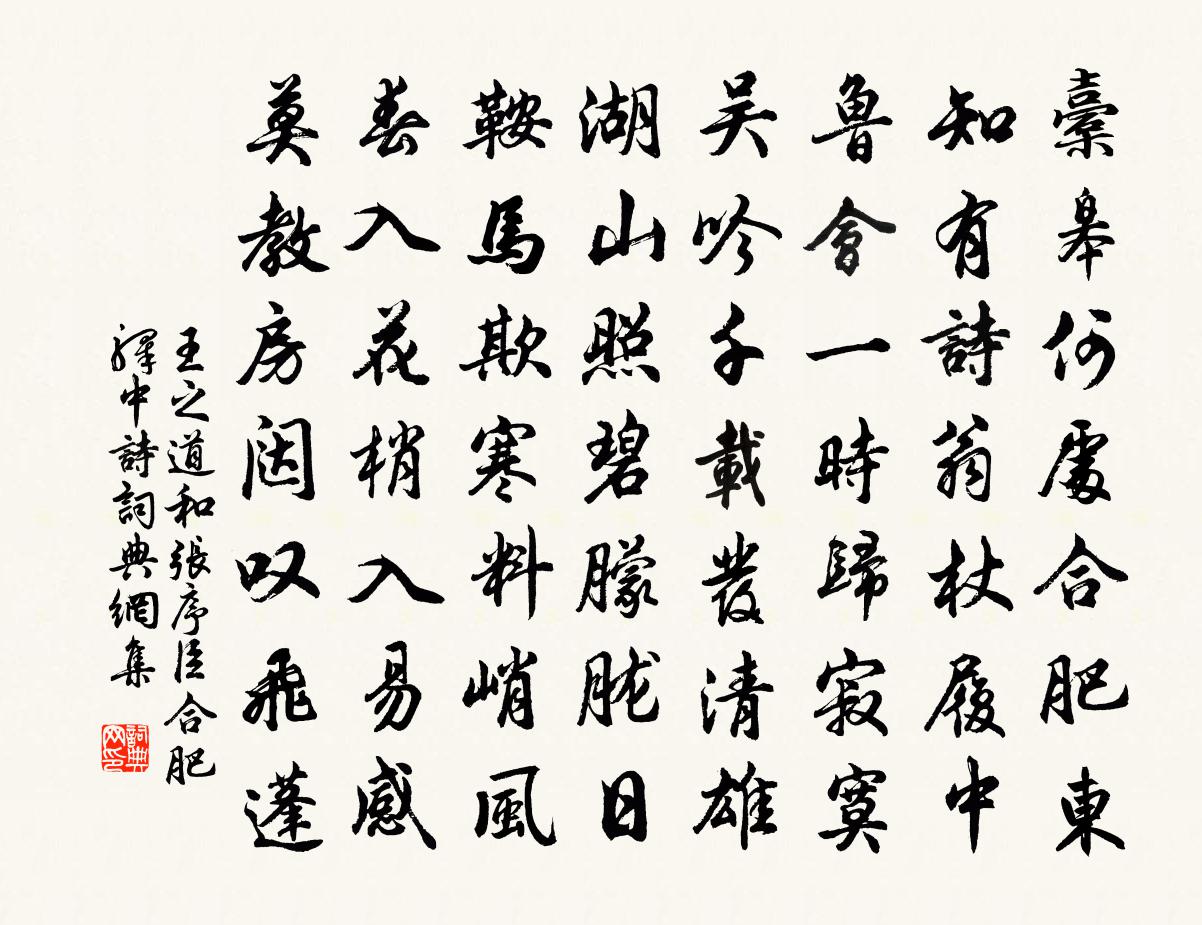 櫜皋何處合肥東
知有詩翁杖履中
魯會一時歸寂寞
吴吟千載發清雄
湖山照碧朦朧日
鞍馬欺寒料峭風
春入花梢入易感
莫教房闼叹飛蓬
王之道和張序臣合肥
驛中詩詞典網集
詞典网印